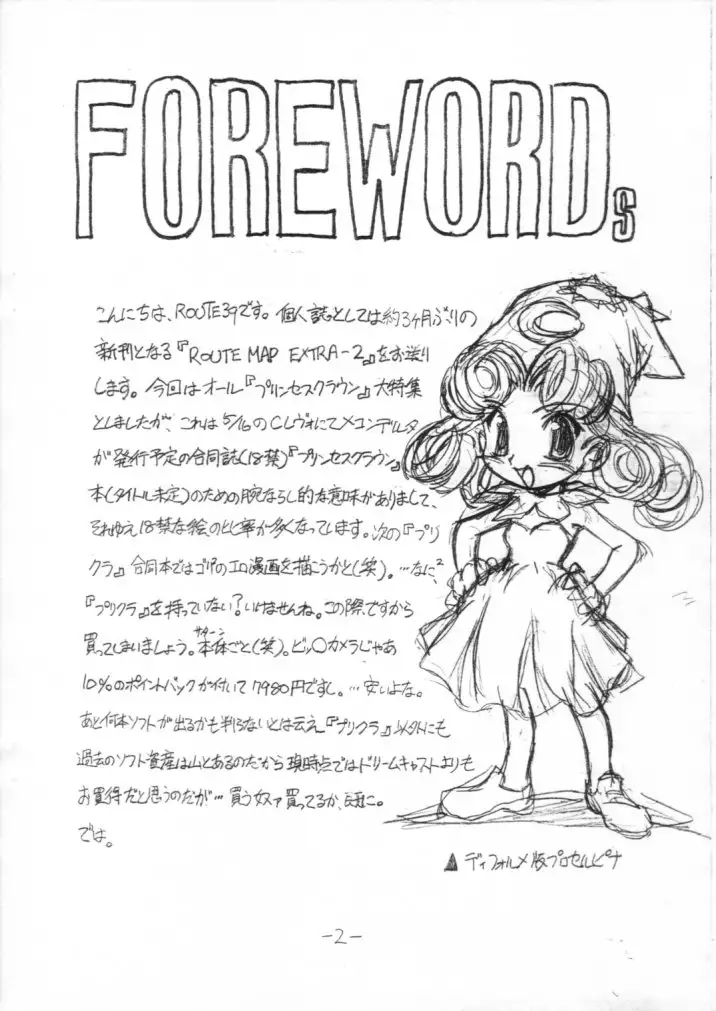 FOREWORDs
こんにちは、ROUTE39です。個人誌としては約3ヶ月ぶりの
新刊となる『ROUTE MAP EXTRA-2』をお送り
します。今回はオール『プリンセスクラウン』大特集
としましたが、これは5/16のCレヴォにてメコンデルタ
が発行予定の合同誌(18禁)『プリンセスクラウン』
本(タイトル未定)のための腕ならし的な意味がありまして、
それゆえ18禁な絵のヒじ率が多くなっています。次の『プリ
クラ』合同本ではゴリアのエロ漫画を描こうかと(笑)。…なに²、
『プリクラ』を持っていない?いけませんね。この際ですから
買ってしまいましょう。本体ごと(笑)。ビッ○カメラじゃあ
サターン
10%のポイントバックが付いて7980円ですし。…安いよな。
あと何本ソフトが出るかも判らないとは云え『プリクラ』以外にも
過去のソフト資産は山とあるのだから現時点ではドリームキャストよりも
お買得だと思うのだが…買う奴ァ買ってるか、既に。
では。
▲ディフォルメ版プロセルピナ
-2-